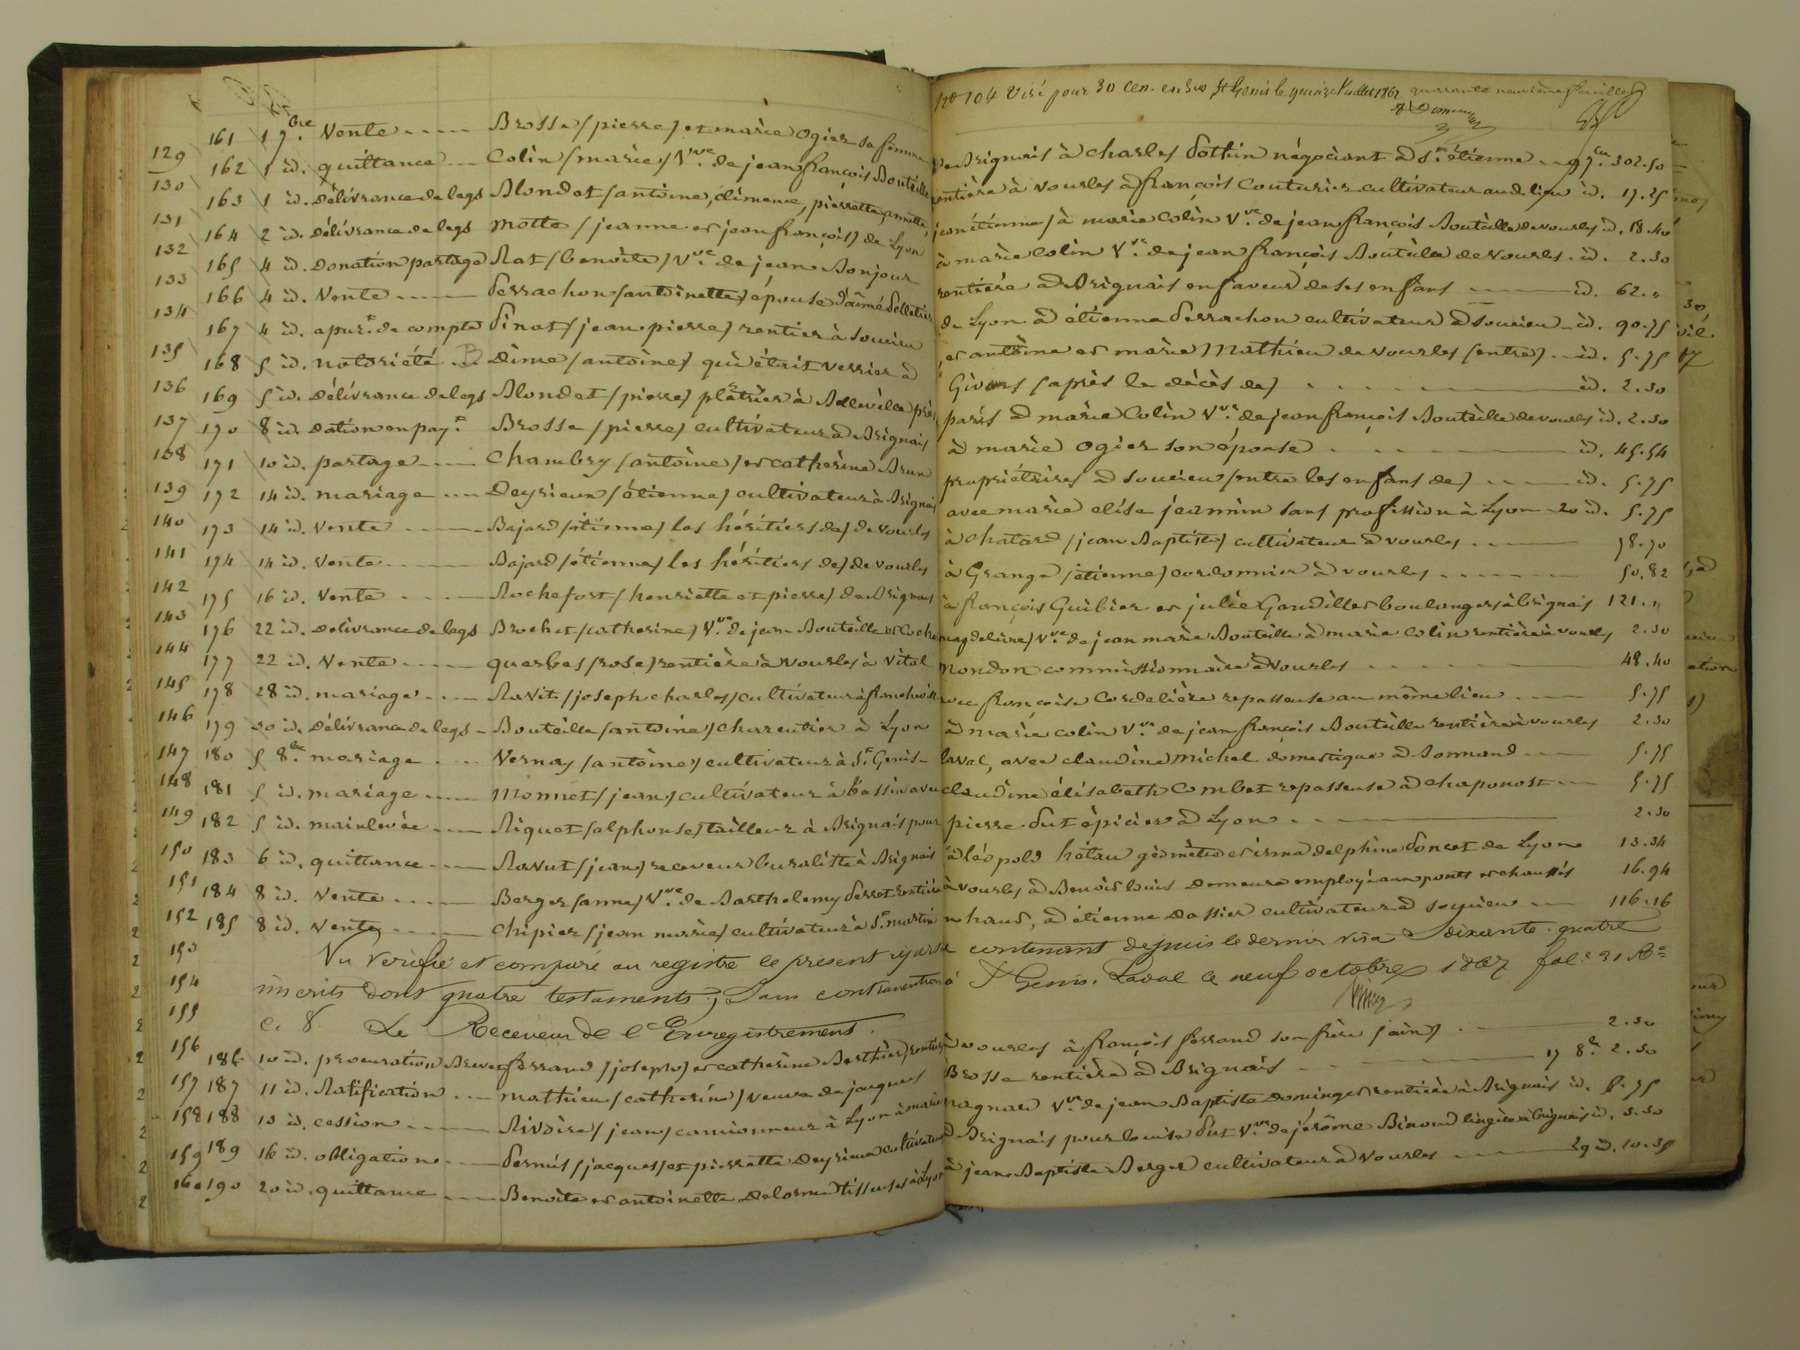 No 104 Visé pour 30 cen. en sus St Genis le quinze Juillet 1862 quarante neuvième feuillet
161 1 7bre Vente Brosse (pierre) et marie Ogier sa femme de Brignais à charles negociant à St étienne 302.50
129 162 1 id. quittance Colin (marie) Vve de jean françois Bouteille rentière à vourles à françois Couturier cultivateur aud. lieu id. 17.25
130 163 1 id. délivrance de legs Blondet (antoine, clémence, pierrette annette, jean étienne) à marie Colin Vve de jean françois Bouteille de vourles id. 18.40
131 164 2 id. délivrance de legs Motte (jeanne et jean françois) de Lyon à marie Colin Vve de jean françois Bouteille de vourles id. 2.30
132 165 4 id. Donation partage Rat (benoite) Vve de jean Bonjour rentière à Brignais en faveur de ses enfans id. 62.,,
133 166 4 id. Vente Perrachon (antoinette) épouse d'aimé Pelletier de Lyon à étienne Perrachon cultivateur à soucieu id. 90.75
134 167 4 id. apurt de compte Pinat (jean pierre) rentier à soucieu et antoine et marie Mathieu de vourles (entre) id. 5.75
135 168 5 id. notoriété Dime (antoine) qui était verrier à Givors (après le décès de) id. 2.30
136 169 5 id. délivrance de legs Blondet (pierre) platrier à Belleville près paris à marie Colin Vve de jean françois Bouteille de vourles id. 2.30
137 170 8 id. dation en payt Brosse (pierre) cultivateur à Brignais à marie Ogier son épouse id. 45.54
138 171 10 id. partage Chambry (antoine) et catherine Brun propriétaires à soucieu (entre les enfans de) id. 5.75
139 172 14 id. mariage Deyrieux (étienne) cultivateur à Brignais avec marie elise jeannin sans profession à Lyon 20 id. 5.75
140 173 14 id. vente Bajard (étienne) les héritiers de) de vourles à chatard (jean Baptiste) cultivateur à vourles 78.70
141 174 14 id. vente Bajard (étienne) les héritiers de) de vourles à Grange (étienne) cordonnier à vourles 50.82
142 175 16 id. Vente Rochefort (henriette et pierre) de Brignais à françois Guibier et julie Gaudillet boulangers à Brignais 121.,,
143 176 22 id. délivrance de legs Brochet (catherine) Vve de jean Bouteille et magdeleine) Vve de jean marie Bouteille à marie Colin rentière à vourles 2.30
144 177 22 id. Vente querbes (rose) rentière à vourles à vital Mondon commissionnaire à vourles 48.40
145 178 28 id. mariage Ravit (joseph charles) cultivateur à francheville avec françoise Cordelière repasseuse au même lieu 5.75
146 179 30 id. délivrance de legs Bouteille (antoine) charcutier à Lyon à marie Colin Vve de jean françois Bouteille rentière à vourles 2.30
147 180 5 8bre mariage Vernay (antoine) cultivateur à St Genis-laval, avec claudine Michel domestique à Sonnand 5.75
148 181 5 id. mariage Monnet (jean) cultivateur à tassin avec claudine élisabeth Combet repasseuse à chaponost 5.75
149 182 5 id. mainlevée Riquet (alphonse) tailleur à Brignais pour pierre dut épicier à Lyon 2.30
150 183 6 id. quittance Ravut (jean) receveur buraliste à Brignais à léopold hétau géomètre et irma delphine Poncet de Lyon 13.34
151 184 8 id. Vente Berger (anne) Vve de Barthelemy Perret rentière à vourles à Benoit louis Demeure employé aux ponts et chaussés 16.94
152 185 8 id. Vente Chipier (jean marie) cultivateur à St martin en haut, à étienne Dassier cultivateur à soucieu 116.16
153 Vu verifié et comparé au registre le présent répertoire contenant depuis le dernier visa soixante quatre
154 inscrits dont quatre testaments; Sans contravention à St Genis-Laval le neuf octobre 1867 fol. 31 Ro
155 c. 8 Le Receveur de l'Enregistrement.
156 186 10 id. procuration Brevet ferrand (joseph) et catherine Berthier, rentiers à vourles à françois ferrand son frère (ain) 2.30
157 187 11 id. Ratification Mathieu (catherine) veuve de jacques Brosse rentière à Brignais 17 8bre 2.30
158 188 13 id. cession Rivoire (jean) camionneur à Lyon à marie magnard Vve de jean Baptiste rentière à Brignais id. 5.75
159 189 16 id. obligation Pernus (jacques) et pierrette Deyrieux cultivateurs à Brignais pour louise dut Vve de jérôme Binoud lingère à Brignais id. 3.30
160 190 20 id. quittance Benoite et antoinette Delorme tisseuses à Lyon à jean Baptiste Berger cultivateur à vourles 29 id. 10.35